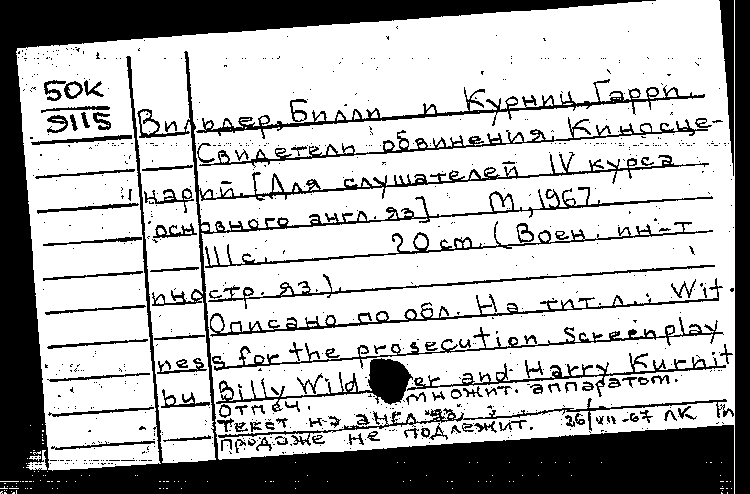 50К
9115
Вильдер, Билли и Курниц, Гарри.
Свидетель обвинения. Киносце-
нарий. [Для слушателей IV курса
основного англ. яз]. М., 1967.
111 с. 20 cm. (Воен. ин-т
иностр. яз.).
Описано по обл. На тит. л.: Wit-
ness for the prosecution. Screenplay
by Billy Wilder and Harry Kurnit
Отпеч. множит. аппаратом.
Текст на англ. яз.
продаже не подлежит. 26/VII-67 ЛК